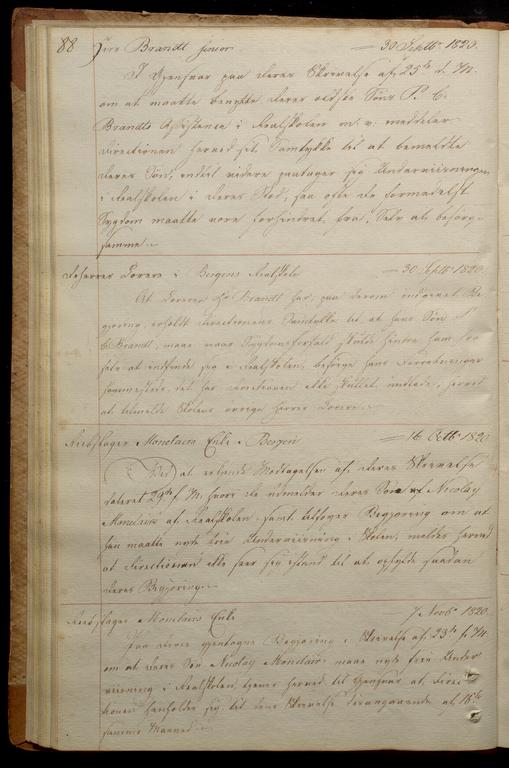 88 Herr Brandt junior — 30 Septbr 1820.
I Gjensvar paa Deres Skrivelse af 25de d. M.
om at maatte benytte Deres ældste Søns P. C.
Brandts Assistance i Realskolen m. v. meddeler
Directionen herved sit Samtykke til at bemeldte
Deres Søn, indtil videre paatager sig Underviisningen
i Realskolen i Deres Sted, saa ofte De formedelst
Sygdom maatte være forhindret fra, Selv at besørge
samme.
De Herrer Lærere i Bergens Realskole — 30 Septbr 1820.
At Lærer Hr Brandt har, paa derom indgivet Be-
gjering, erholdt Directionens Samtykke til at hans Søn P.
C. Brandt, maae naar Sygdomsforfald skulde hindre ham fra
selv at indfinde sig i Realskolen, besørge hans Forretninger
sammesteds, det har Directionen ikke skullet undlade, herved
at tilmelde Skolens øvrige Herrer Lærere.
Reebslager Monclairs Enke i Bergen — 16 Octbr 1820
Ved at erkjende Modtagelsen af Deres Skrivelse
dateret 29de f. M. hvori De udmelder Deres Søn Nicolay
Monclair af Realskolen, samt tilføyer Begjering om at
han maatte nyde frie Underviisning i Skolen, meldes herved
at Directionen ikke seer sig istand til at opfylde saadan
Deres Begjering.
Reebslager Monclairs Enke 7 Novbr 1820.
Paa Deres gjentagne Begjering i Skrivelse af 23de f. M.
om at Deres Søn Nicolay Monclair maae nyde frie Under-
viisning i Realskolen, tjener herved til Gjensvar at Direc-
tionen henholder sig til dens Skrivelse desangaaende af 16de
samme Maaned.